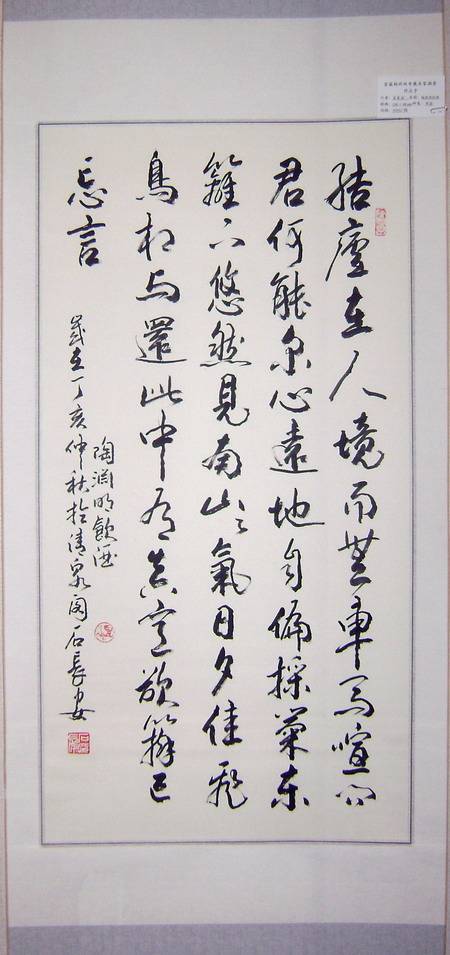 結廬在人境而無車馬喧问
君何能尔心遠地自偏採菊东
籬下悠然見南山々氣日夕佳飛
鳥相与還此中有真意欲辩已
忘言
陶渊明飲酒
歲在丁亥仲秋於清泉阁石長安